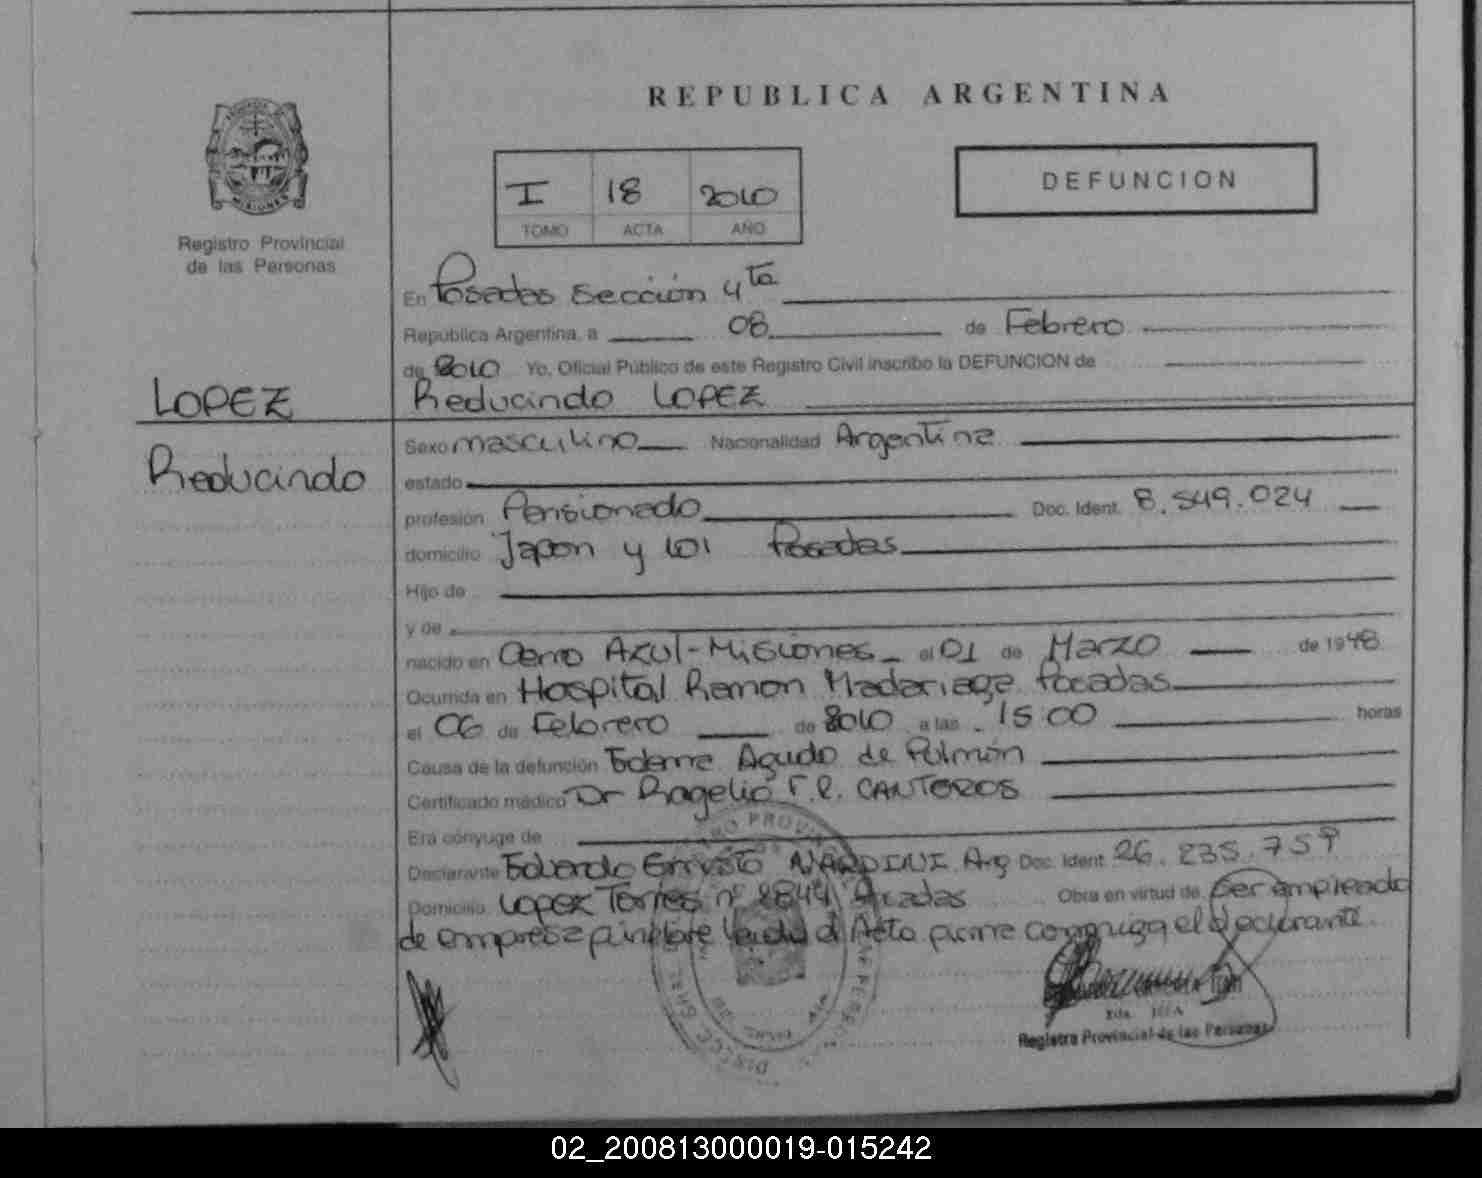 REPUBLICA ARGENTINA
MISIONES
Registro Provincial
de las Personas
I 18 2010
TOMO ACTA AÑO
DEFUNCION
En Posadas Sección 4ta
República Argentina, a 08 de Febrero
de 2010 Yo, Oficial Público de este Registro Civil inscribo la DEFUNCION de
LOPEZ
Reducindo LOPEZ
Reducindo
Sexo masculino Nacionalidad Argentina
estado
profesión Pensionado Doc. Ident. 8.549.024
domicilio Japon y 101 Posadas
Hijo de
y de
nacido en Cerro Azul-Misiones el 01 de Marzo de 1948
Ocurrida en Hospital Ramon Madariaga Posadas
el 06 de Febrero de 2010 a las 15 00 horas
Causa de la defunción Edema Agudo de Pulmón
Certificado médico Dr Rogelio F.R. CANTEROS
Era cónyuge de
Declarante Eduardo Ernesto NARDINI Arg Doc. Ident. 26.235.759
Domicilio Lopez Torres nº 2844 Posadas Obra en virtud de Ser empleado
de empresa funebre Leida el Acta firma conmigo el declarante
JEFA
Registro Provincial de las Personas
02_200813000019-015242